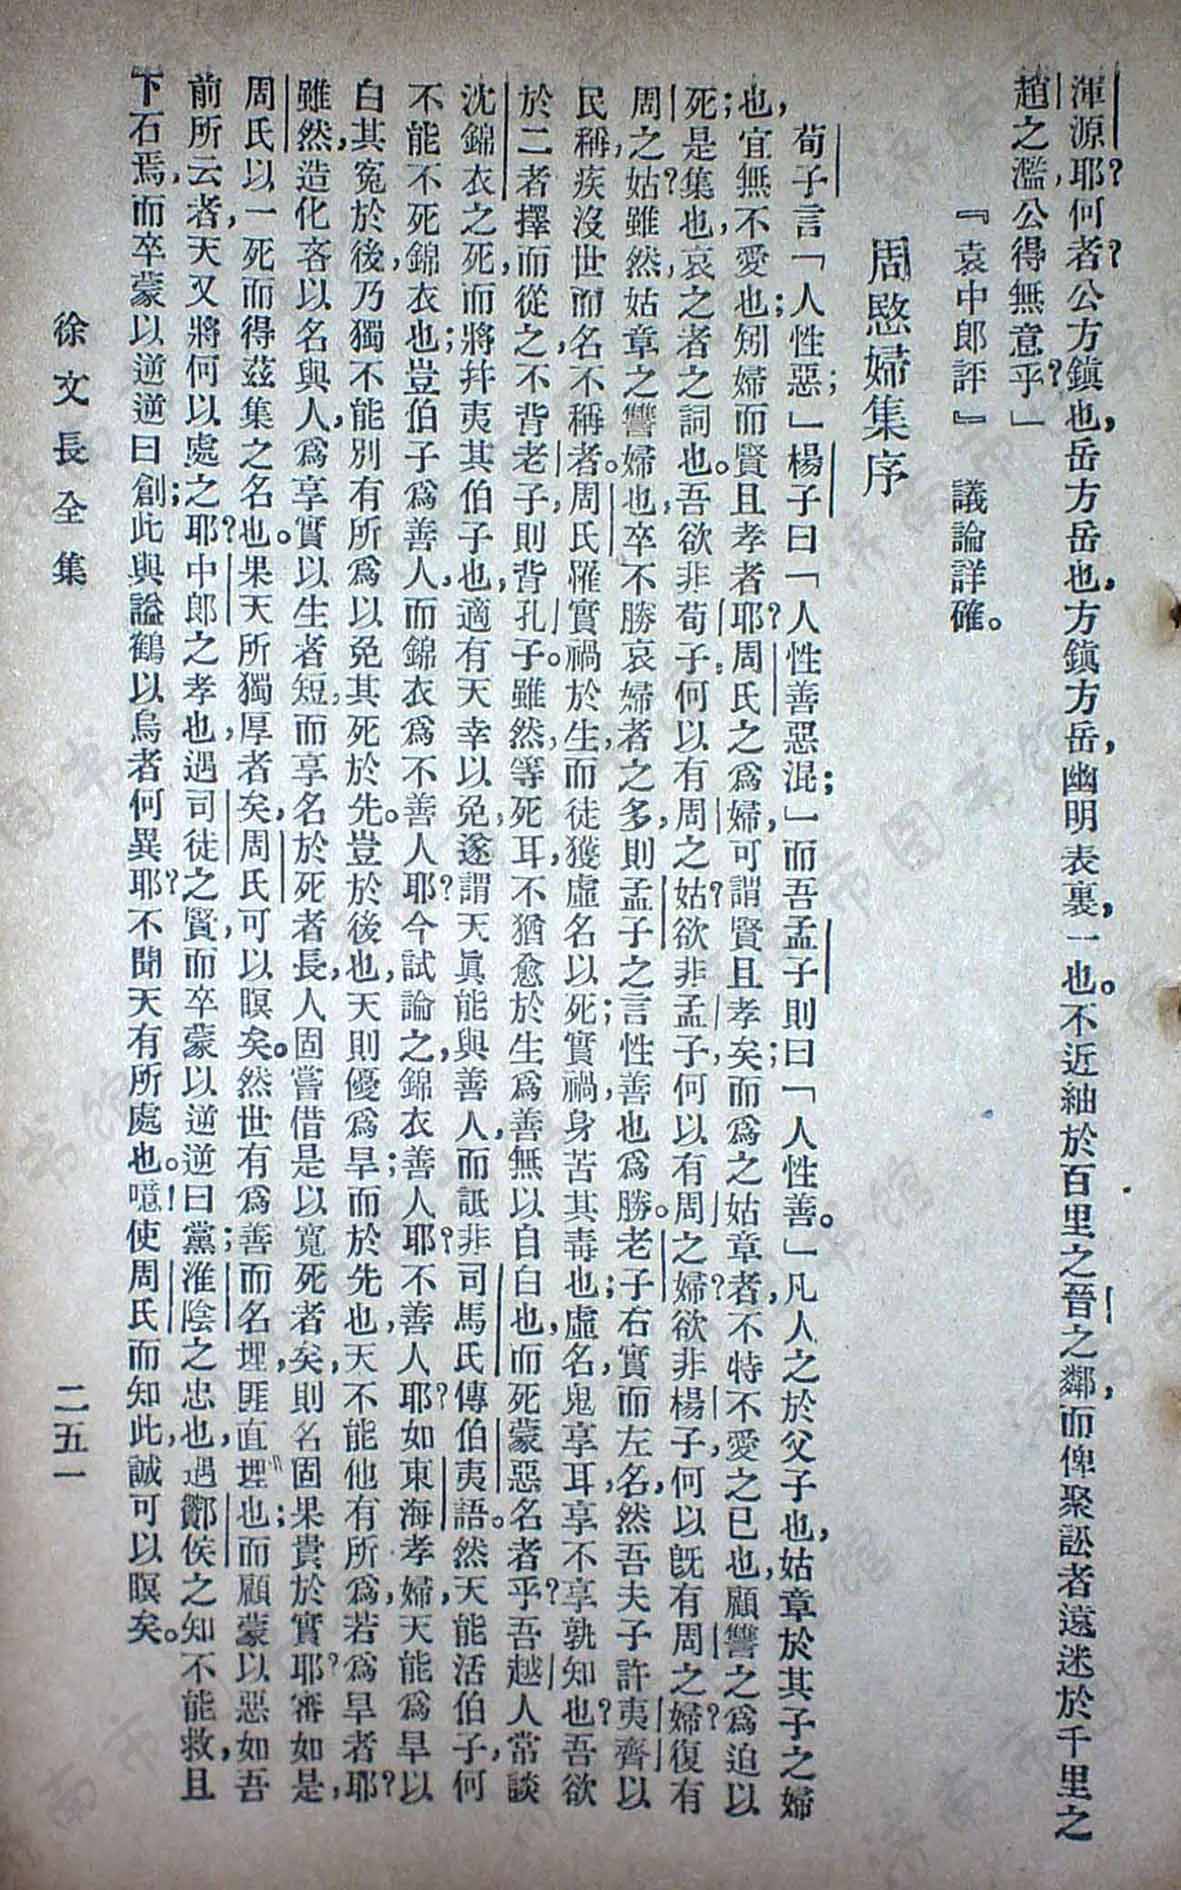 渾源耶？何者？公方鎮也，岳方岳也，方鎮方岳，幽明表裏，一也。不近紬於百里之晉之鄰，而俾聚訟者遠迷於千里之
趙之濫，公得無意乎？」
『袁中郎評』　議論詳確。
周愍婦集序
荀子言「人性惡；」楊子曰「人性善惡混；」而吾孟子則曰「人性善。」凡人之於父子也，姑章於其子之婦
也，宜無不愛也；矧婦而賢且孝者耶？周氏之爲婦，可謂賢且孝矣；而爲之姑章者，不特不愛之已也，顧讐之爲迫以
死；是集也，哀之者之詞也。吾欲非荀子，何以有周之姑？欲非孟子，何以有周之婦？欲非楊子，何以旣有周之婦？復有
周之姑？雖然，姑章之讐婦也，卒不勝哀婦者之多，則孟子之言性善也爲勝。老子右實而左名，然吾夫子許夷齊以
民稱，疾沒世而名不稱者。周氏罹實禍於生，而徒獲虛名以死；實禍，身苦其毒也；虛名，鬼享耳，享不享孰知也？吾欲
於二者擇而從之，不背老子，則背孔子。雖然，等死耳，不猶愈於生爲善，無以自白也，而死蒙惡名者乎？吾越人常談
沈錦衣之死，而將幷夷其伯子也，適有天幸以免，遂謂天眞能與善人，而詆非司馬氏傳伯夷語。然天能活伯子，何
不能不死錦衣也；豈伯子爲善人，而錦衣爲不善人耶？今試論之，錦衣善人耶？不善人耶？如東海孝婦，天能爲旱以
白其寃於後，乃獨不能別有所爲以免其死於先。豈於後也，天則優爲旱；而於先也，天不能他有所爲，若爲旱者耶？
雖然，造化吝以名與人，爲享實以生者短，而享名於死者長，人固嘗借是以寬死者矣，則名固果貴於實耶？審如是，
周氏以一死而得茲集之名也。果天所獨厚者矣，周氏可以瞑矣。然世有爲善而名埋，匪直埋也；而顧蒙以惡如吾
前所云者，天又將何以處之耶？中郎之孝也，遇司徒之賢，而卒蒙以逆，逆曰黨；淮陰之忠也，遇酇侯之知不能救，且
下石焉，而卒蒙以逆，逆曰創；此與謚鶴以烏者何異耶？不聞天有所處也。噫！使周氏而知此，誠可以瞑矣。
徐文長全集
二五一